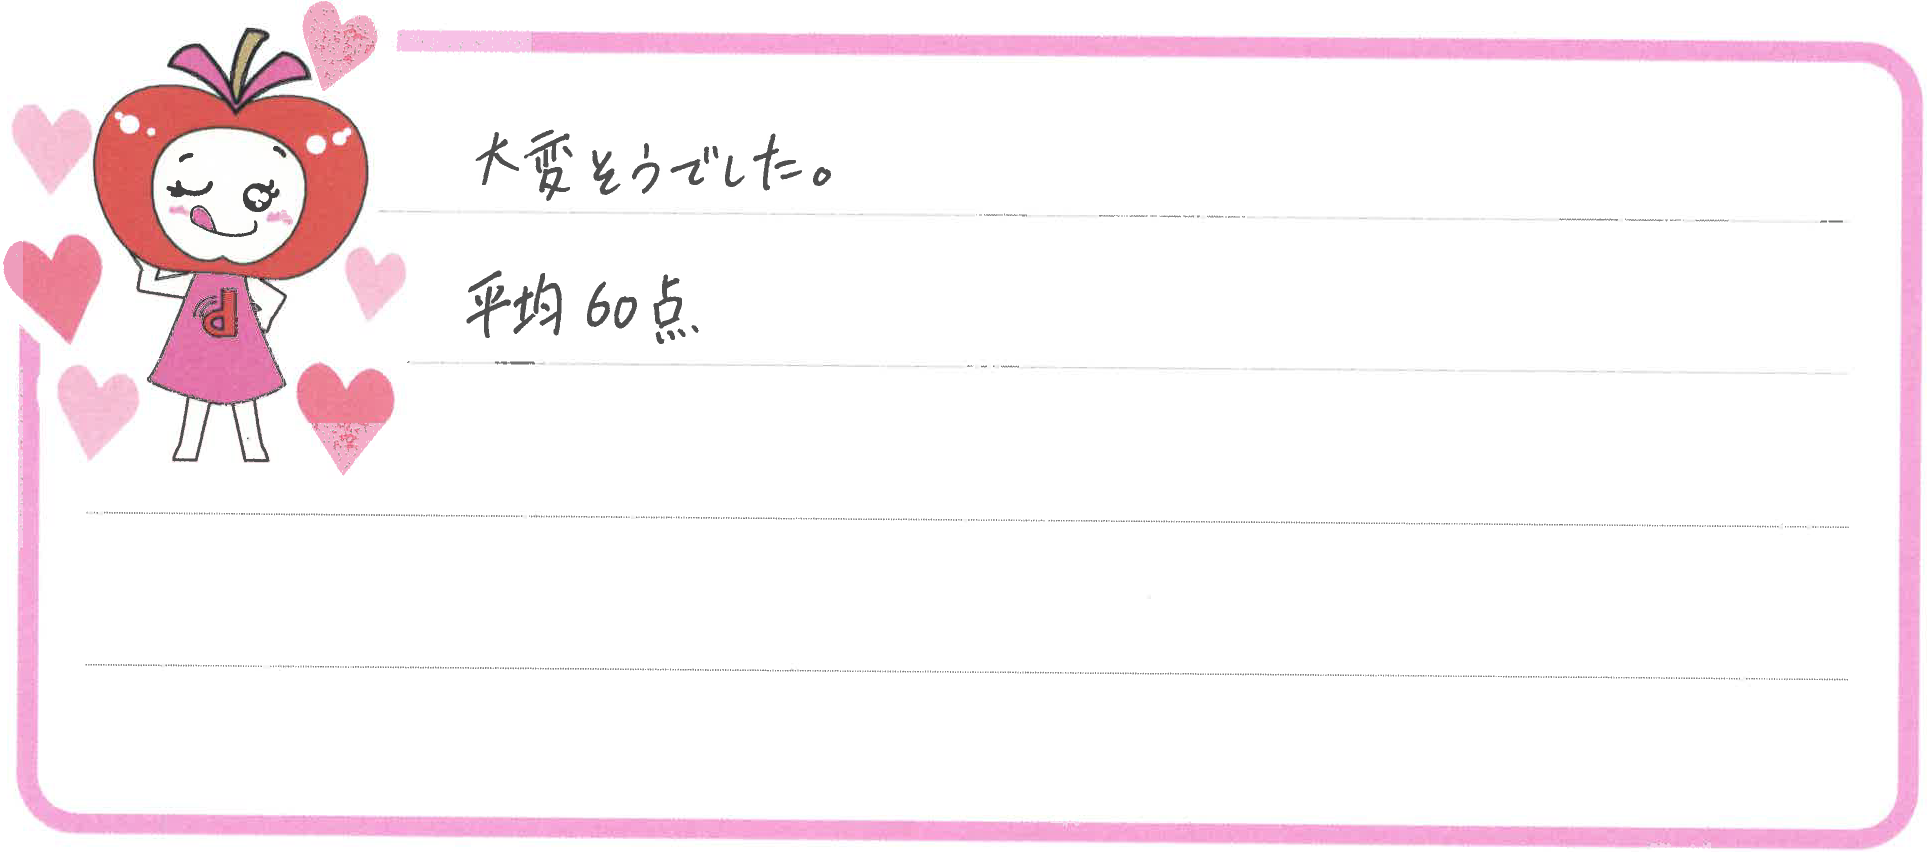 大変そうでした。
平均60点